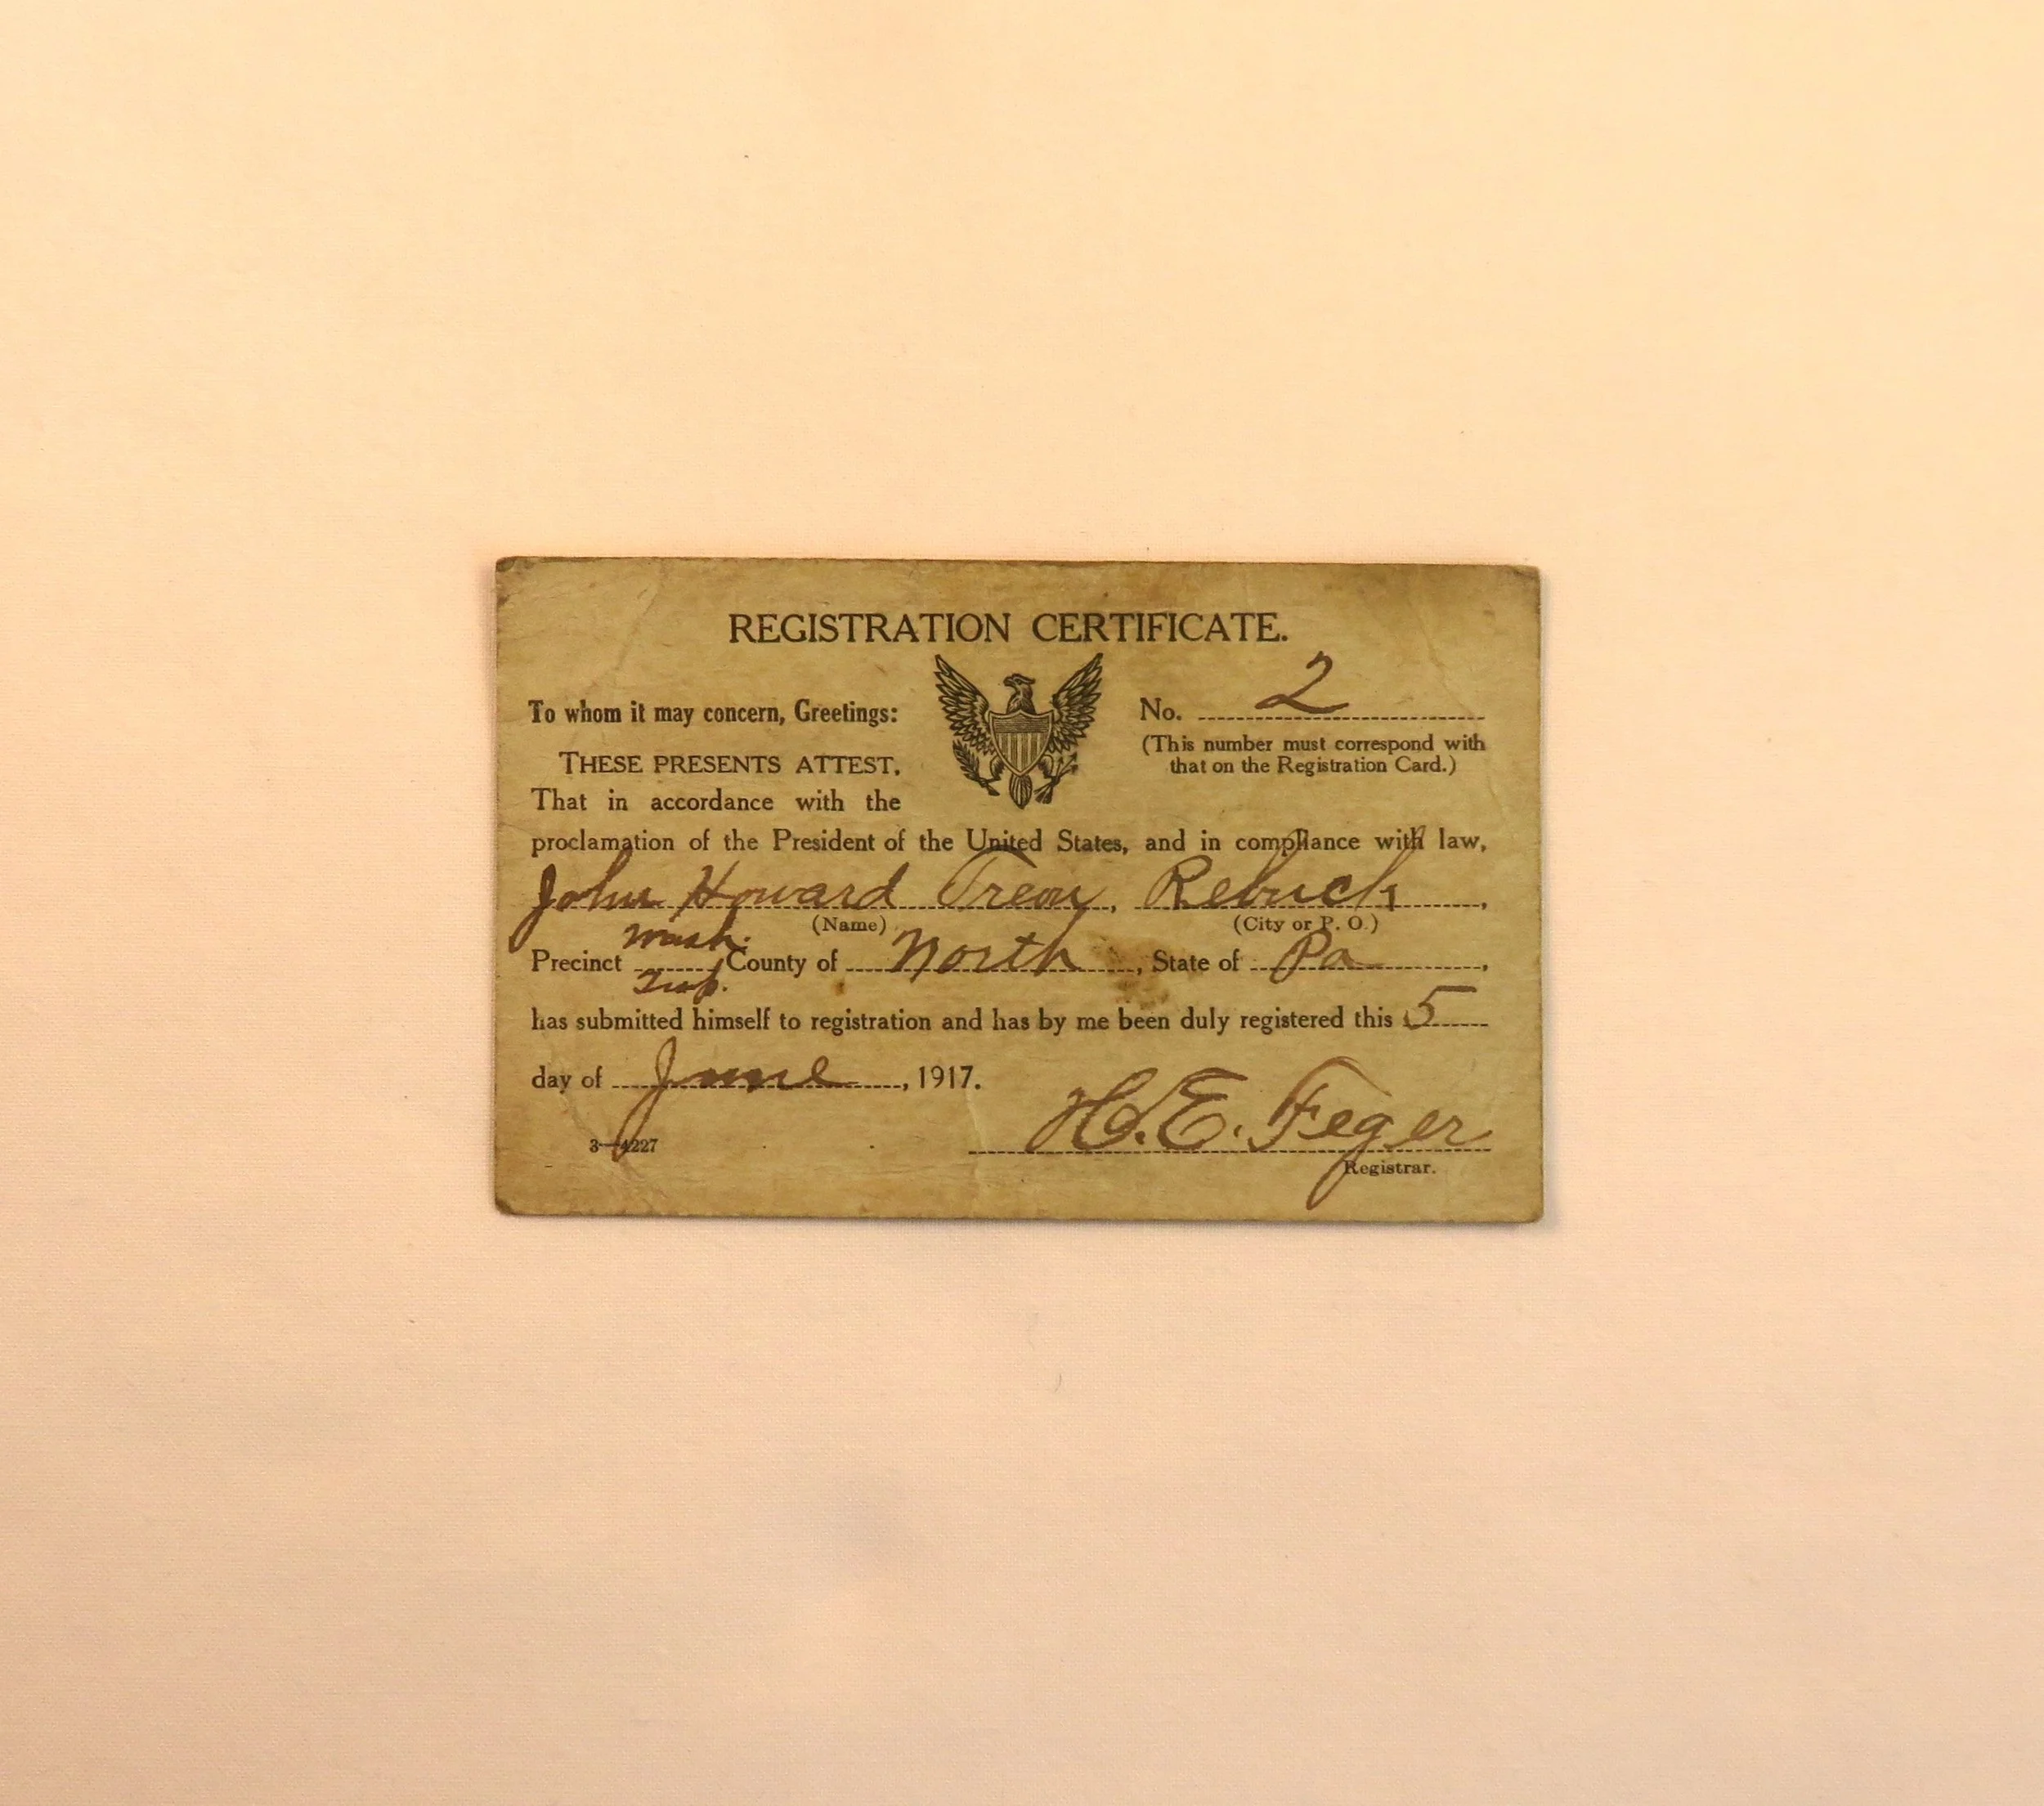 REGISTRATION CERTIFICATE.
To whom it may concern, Greetings:
No. 2
(This number must correspond with
that on the Registration Card.)
THESE PRESENTS ATTEST,
That in accordance with the
proclamation of the President of the United States, and in compliance with law,
John Howard Treon, Rebuck,
(Name) (City or P. O.)
Wash.
Precinct County of North, State of Pa,
Twp.
has submitted himself to registration and has by me been duly registered this 5
day of June, 1917.
H. E. Feger
3—4227
Registrar.